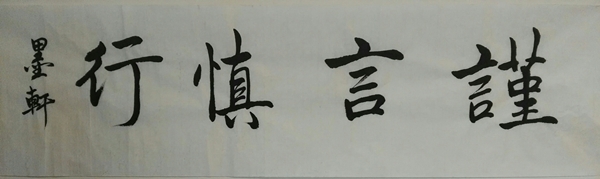 謹言慎行
墨軒